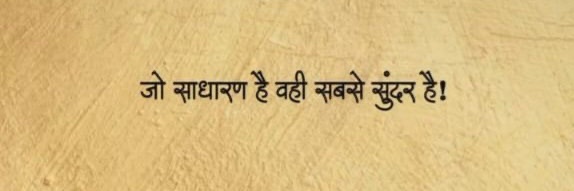 जो साधारण है वही सबसे सुंदर है!